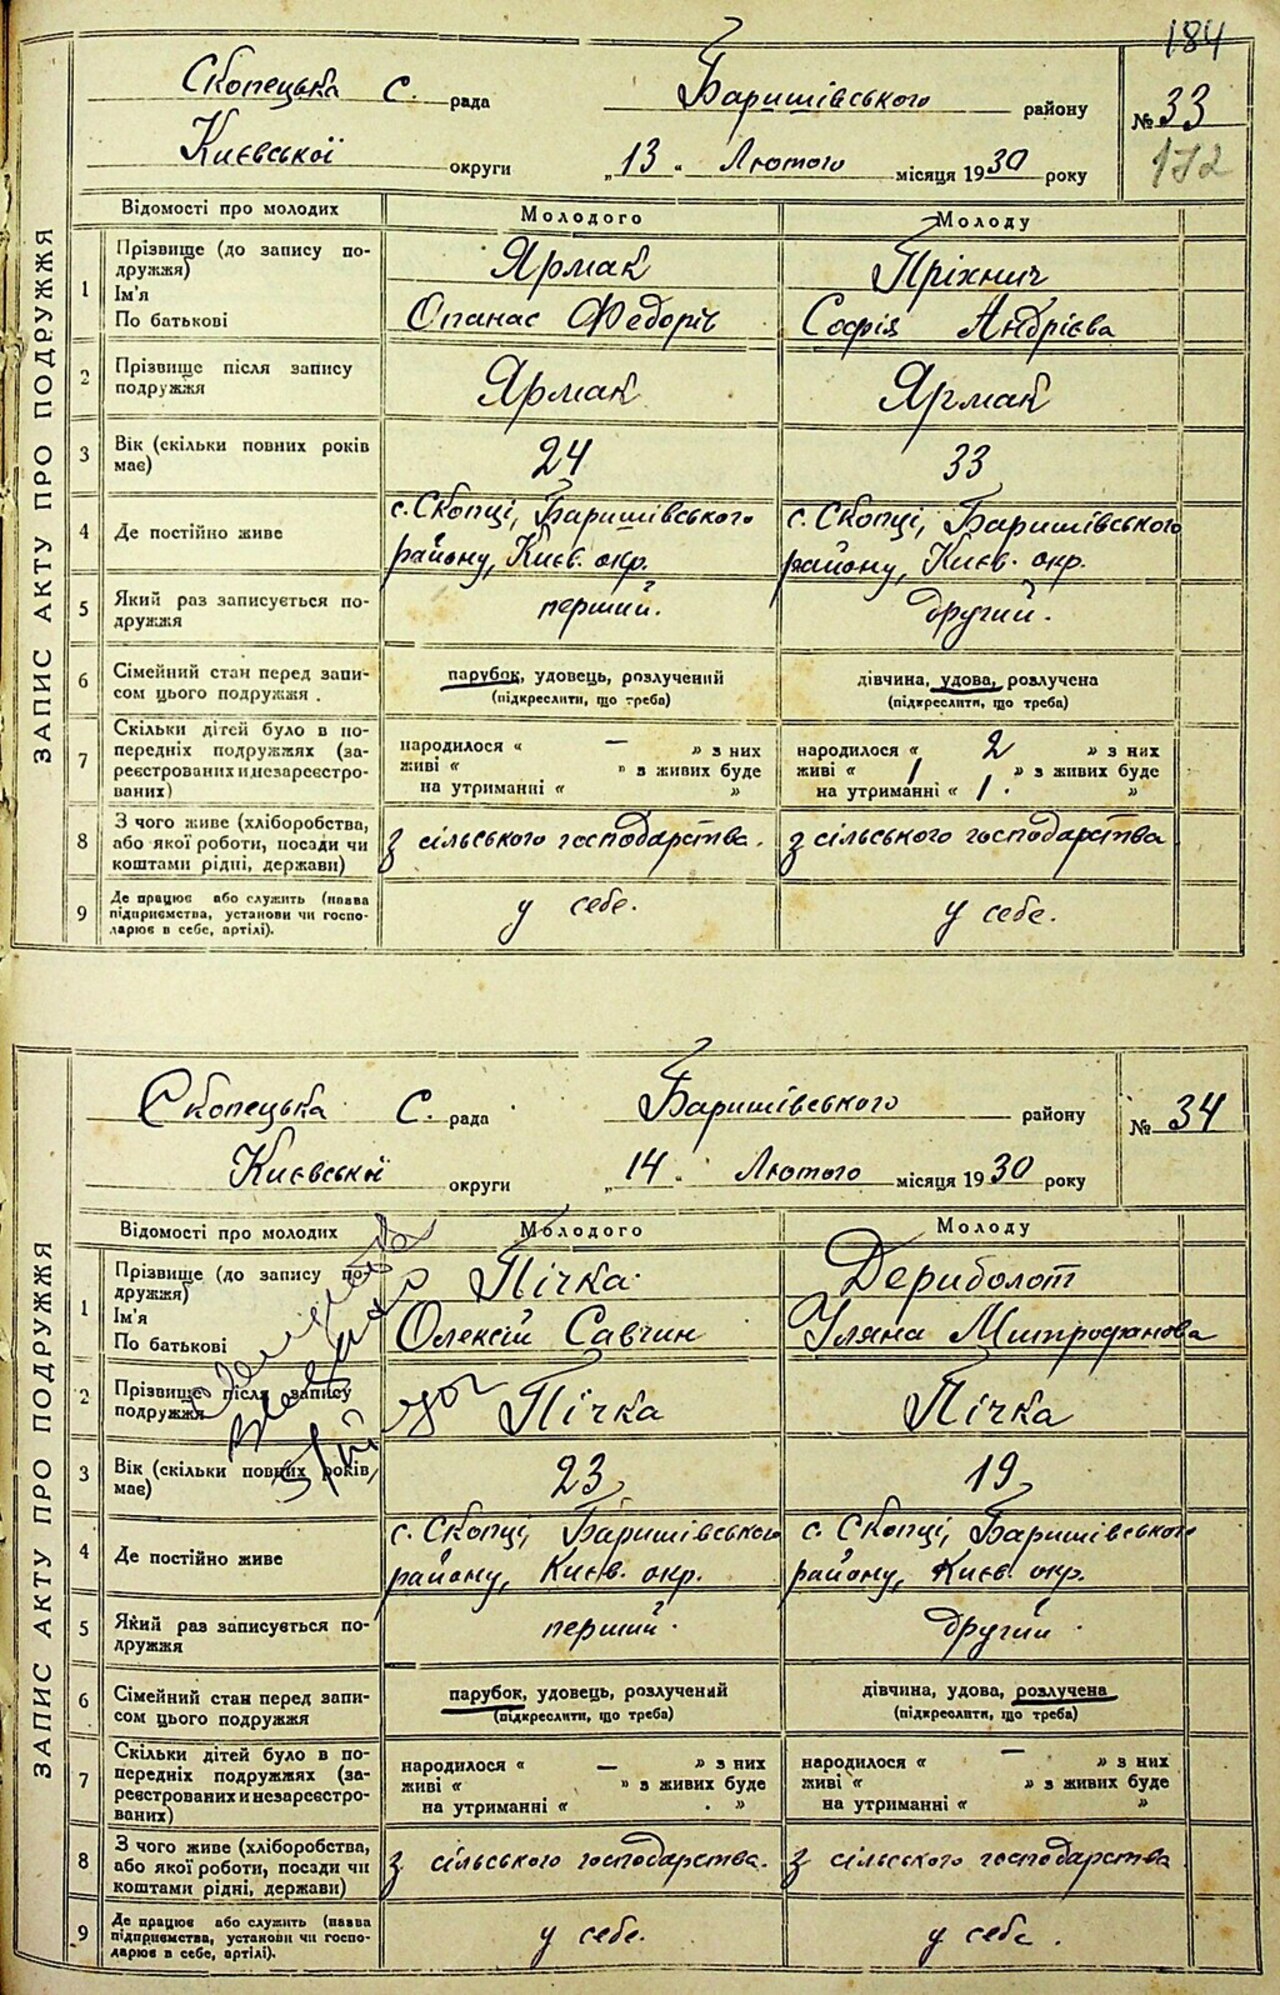 184
Скопецька с. рада Баришівського району № 33
Києвської округи „13“ Лютого місяця 1930 року
172
ЗАПИС АКТУ ПРО ПОДРУЖЖЯ
Відомості про молодих Молодого Молоду
1 Прізвище (до запису по- Ярмак Пріхнич
дружжя)
Ім'я
По батькові Опанас Федорів Софія Андрієва
2 Прізвище після запису Ярмак Ярмак
подружжя
3 Вік (скільки повних років 24 33
має)
4 Де постійно живе с. Скопці, Баришівського с. Скопці, Баришівського
району, Києв. окр. району, Києв. окр.
5 Який раз записується по- перший. другий.
дружжя
6 Сімейний стан перед запи- парубок, удовець, розлучений дівчина, удова, розлучена
сом цього подружжя . (підкреслити, що треба) (підкреслити, що треба)
7 Скільки дітей було в по-
передніх подружжях (за- народилося « — » з них народилося « 2 » з них
реєстрованих и незареєстро- живі « » з живих буде живі « 1 » з живих буде
ваних) на утриманні « » на утриманні « 1. »
8 З чого живе (хліборобства,
або якої роботи, посади чи з сільського господарства. з сільського господарства
коштами рідні, держави)
9 Де працює або служить (назва
підприємства, установи чи госпо- у себе. у себе.
дарює в себе, артілі).
Скопецька с. рада Баришівського району № 34
Києвської округи „14“ Лютого місяця 1930 року
ЗАПИС АКТУ ПРО ПОДРУЖЖЯ
Відомості про молодих Молодого Молоду
1 Прізвище (до запису по- Пічка Дериболот
дружжя)
Ім'я
По батькові Олексій Савчин Уляна Митрофанова
2 Прізвище після запису Пічка Пічка
подружжя
3 Вік (скільки повних років, 23 19
має)
4 Де постійно живе с. Скопці, Баришівського с. Скопці, Баришівського
району, Києв. окр. району, Києв. окр.
5 Який раз записується по- перший. другий.
дружжя
6 Сімейний стан перед запи- парубок, удовець, розлучений дівчина, удова, розлучена
сом цього подружжя (підкреслити, що треба) (підкреслити, що треба)
7 Скільки дітей було в по-
передніх подружжях (за- народилося « — » з них народилося « — » з них
реєстрованих и незареєстро- живі « » з живих буде живі « » з живих буде
ваних) на утриманні « » на утриманні « »
8 З чого живе (хліборобства,
або якої роботи, посади чи з сільського господарства. з сільського господарства
коштами рідні, держави)
9 Де працює або служить (назва
підприємства, установи чи госпо- у себе. у себе.
дарює в себе, артілі).